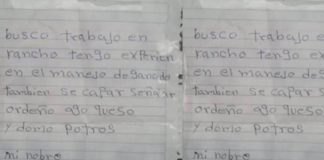 busco trabajo en
rancho tengo experien
en el manejo de ganado
tambien se capar señalar
ordeño ago queso
y domo potros
mi nobre
busco trabajo e
rancho tengo
en el manejo de
tambien se capar
ordeño ago queso
y domo potros
mi nobre